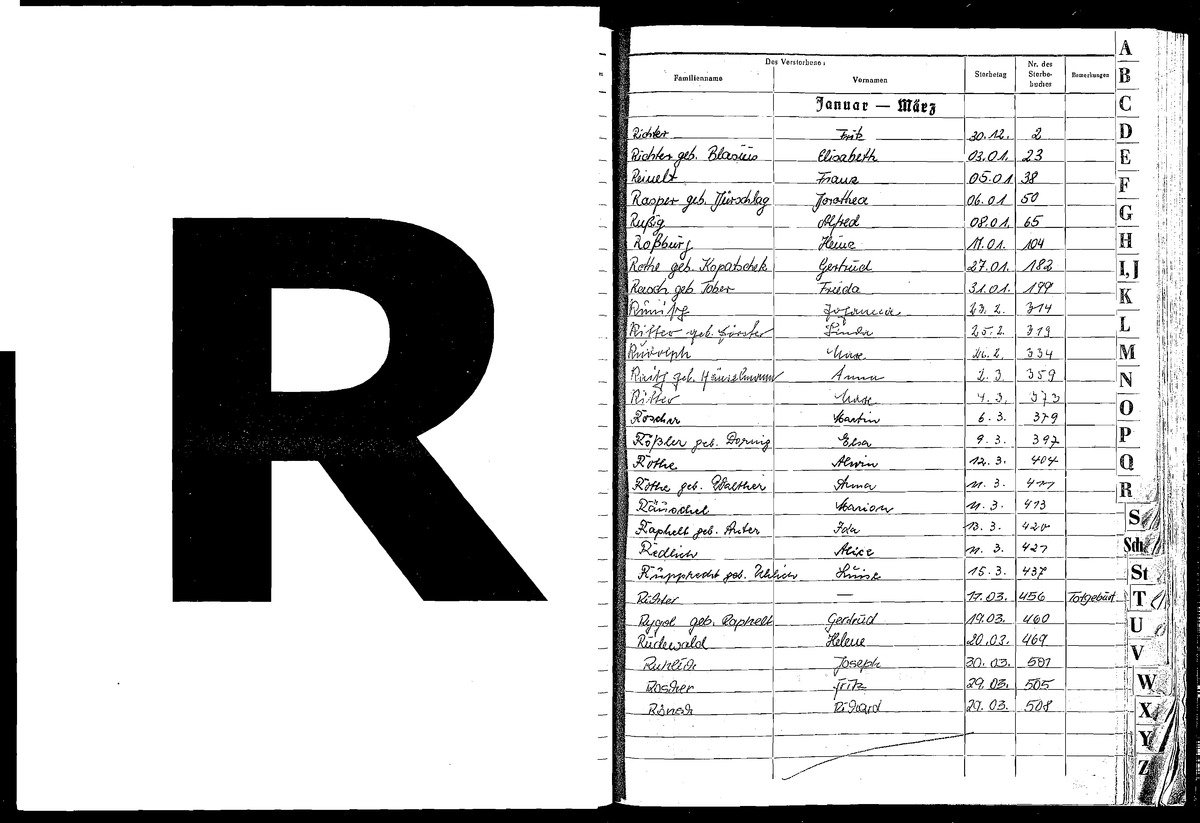 R
Des Verstorbenen
Familienname Vornamen Sterbetag Nr. des Sterbebuches Bemerkungen
Januar — März
Richter Fritz 30.12. 2
Richter geb. Blasius Elisabeth 03.01. 23
Reinelt Franz 05.01. 38
Rasper geb. Dorothea 06.01. 50
Rußig Alfred 08.01. 65
Roßburg Heinz 11.01. 104
Rothe geb. Kopatschek Gertrud 27.01. 182
Rasch geb. Tober Frieda 31.01. 199
Johanna 23.2. 314
Ritter geb. Förster Linda 25.2. 319
Rudolph Max 26.2. 334
geb. Anna 2.3. 359
Ritter Max 4.3. 373
Roscher Martin 6.3. 379
Rößler geb. Dornig Elsa 9.3. 397
Rothe Alwin 12.3. 404
Rothe geb. Walther Anna 11.3. 411
Räuschel Marion 11.3. 413
Raphelt geb. Anter Ida 13.3. 420
Redlich Alice 11.3. 421
Rupprecht geb. 15.3. 437
Richter — 17.03. 456 Totgeburt
geb. Raphelt Gertrud 19.03. 460
Rudewald Helene 20.03. 469
Joseph 30.03. 501
Roscher Fritz 29.03. 505
Richard 27.03. 508
A
B
C
D
E
F
G
H
I, J
K
L
M
N
O
P
Q
R
S
Sch
St
T
U
V
W
X
Y
Z